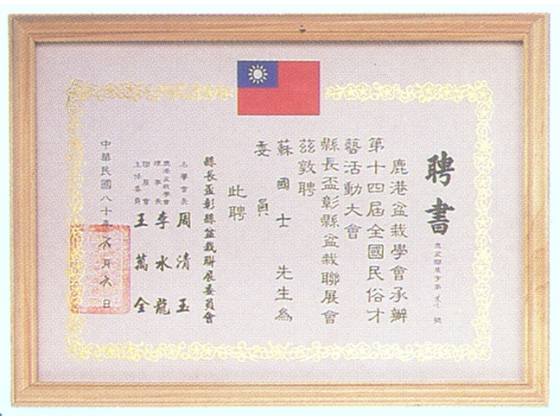 聘書
鹿港盆栽學會承辦
第十四屆全國民俗才
藝活動大會
縣長盃彰縣盆栽聯展會
茲敦聘
蘇國士 先生為
委員
此聘
縣長盃彰縣盆栽聯展委員會
名譽會長 周清玉
鹿港盆栽學會
理事長 李水龍
聯展會
主任委員 王萬全
中華民國八十年六月六日